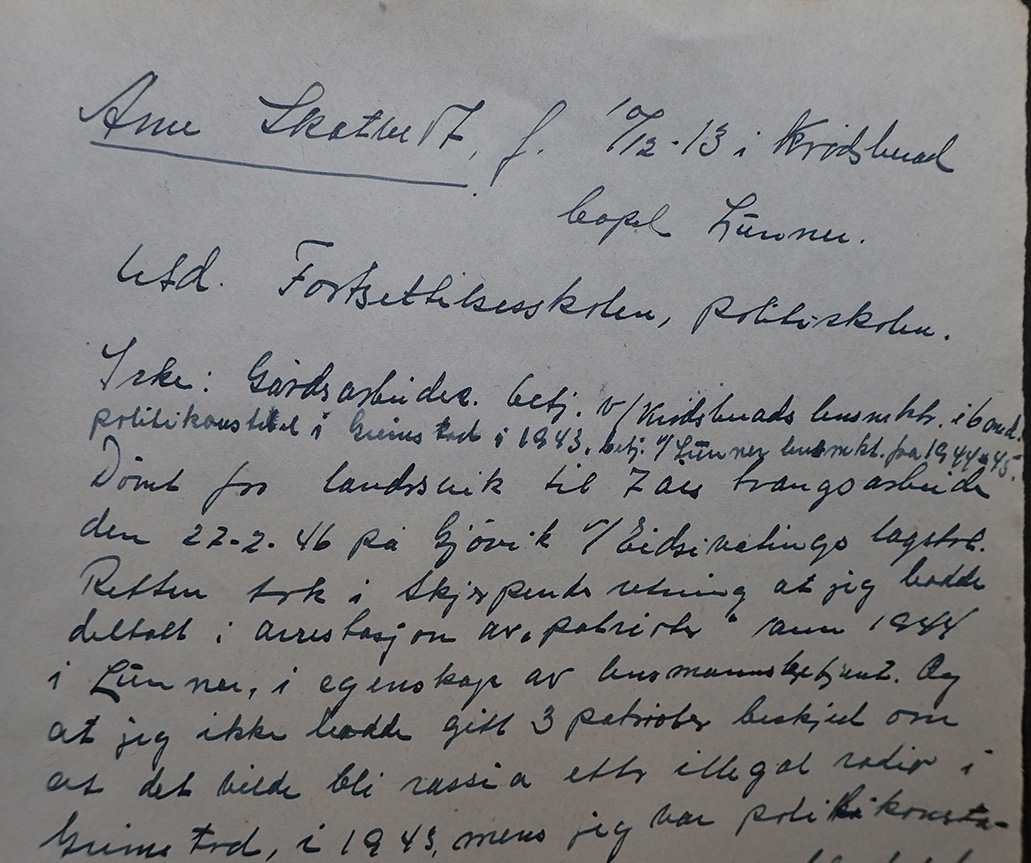 Arne Skatvedt, f. 10/12-13 i Krødsherad
bopel Lunner.
Utd. Fortsettelsesskolen, politiskolen.
Yrke: Gårdsarbeider. betj. v/Krødsherads lensmktr. i 6 mnd.
politikonstabel i Grimstad i 1943. betj. v/Lunner lensmkt. fra 1944-45.
Dømt for landssvik til 7 aars tvangsarbeide
den 22-2-46 på Gjøvik v/Eidsivatings lagstol.
Retten tok i skjerpende retning at jeg hadde
deltatt i arrestasjon av "patrioter" 1944
i Lunner, i egenskap av lensmannsbetjent. Og
at jeg ikke hadde gitt 3 patrioter beskjed om
at det vilde bli rassia etter illegal radio i
Grimstad, i 1943, mens jeg var politikonsta-